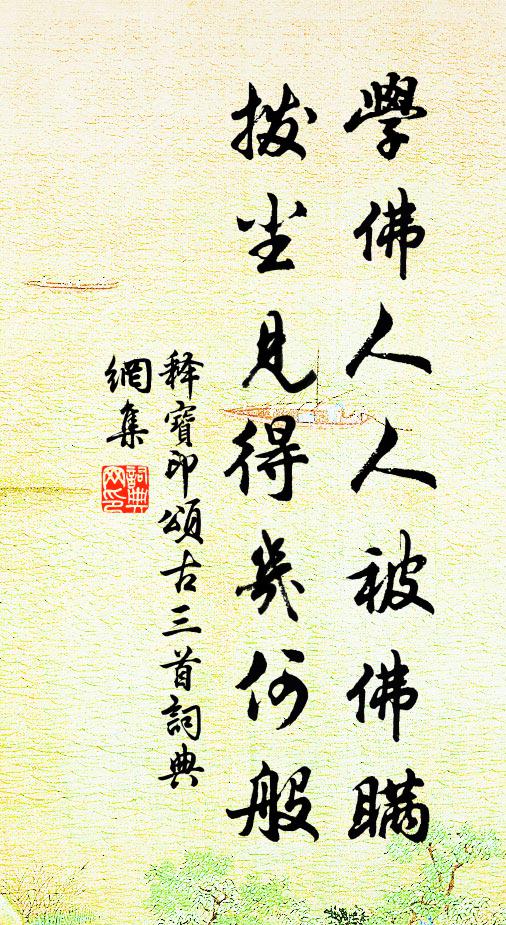 學佛人人被佛瞞
撥尘見得幾何般
释寶印頌古三首詞典
網集